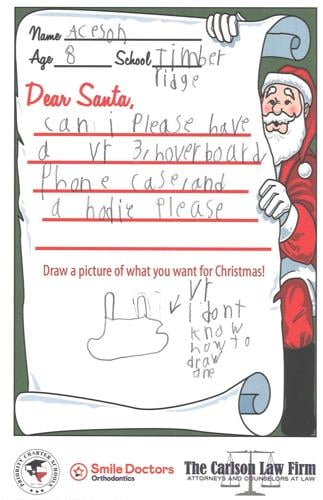 Name Aceson
Age 8 School Timber
ridge
Dear Santa,
can i Please have
a vr 3, hoverboard,
Phone case, and
a hodie Please
Draw a picture of what you want for Christmas!
vr
I dont
know
how to
draw
one
PRIORITY CHARTER SCHOOLS
Smile Doctors
Orthodontics
The Carlson Law Firm
ATTORNEYS AND COUNSELORS AT LAW